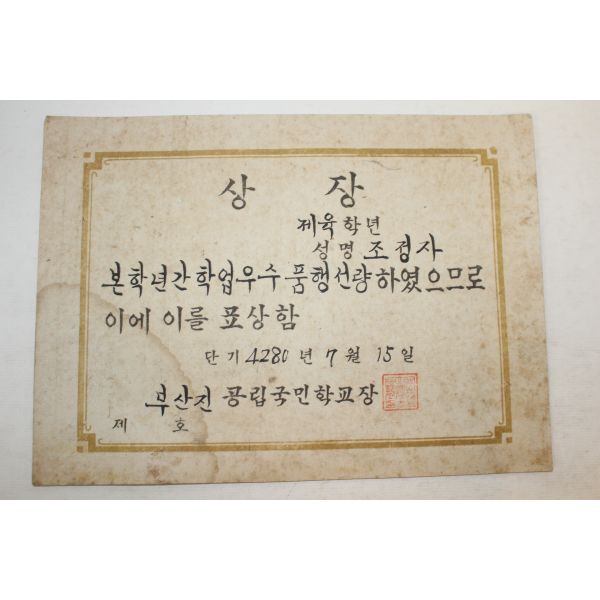 상 장
제육학년
성명 조정자
본학년간학업우수품행선량하였으므로
이에 이를 표상함
단기 4280 년 7 월 15 일
부산진 공립국민학교장
제 호